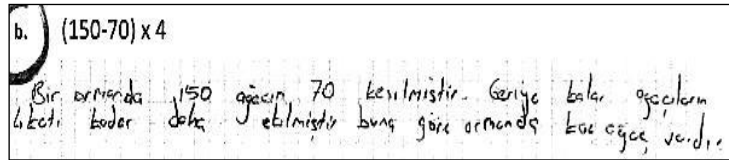 b. (150-70) x 4
Bir ormanda 150 ağacın 70 kesilmiştir. Geriye kalan ağaçların
4 katı kadar daha ekilmiştir buna göre ormanda kaç ağaç vardır.